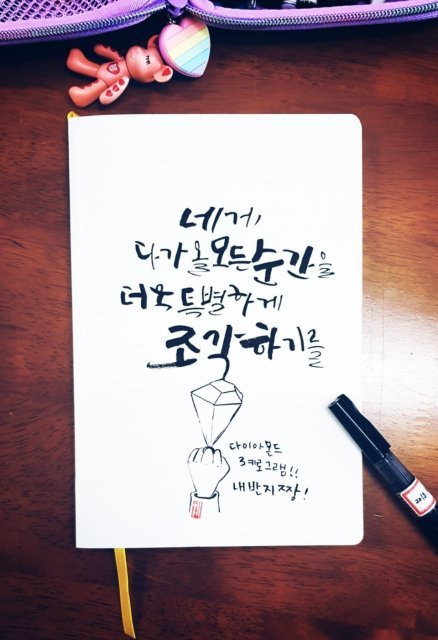 네게,
다가올 모든 순간을
더욱 특별하게
조각하기를
다이아몬드
3키로그램!!
내 반지 짱!